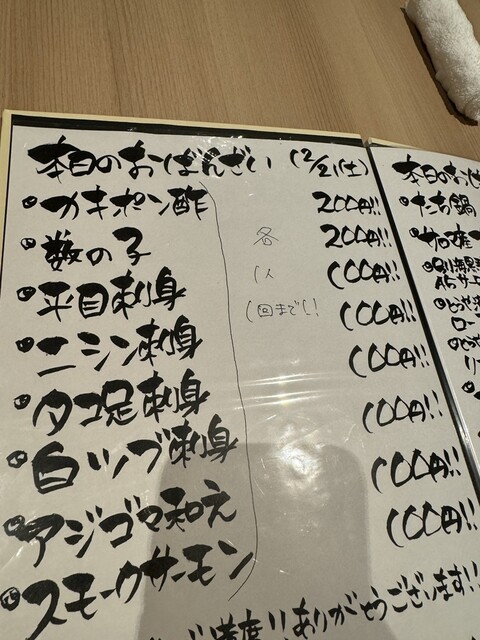 本日のおばんざい 12/21(土)
・カキポン酢 200円!!
・数の子 200円!!
・平目刺身 100円!!
・ニシン刺身 100円!!
・タコ足刺身 100円!!
・白ツブ刺身 100円!!
・アジゴマ和え 100円!!
・スモークサーモン 100円!!
各
1人
1回まで!!
ありがとうございます!!
本日のお
・たち鍋